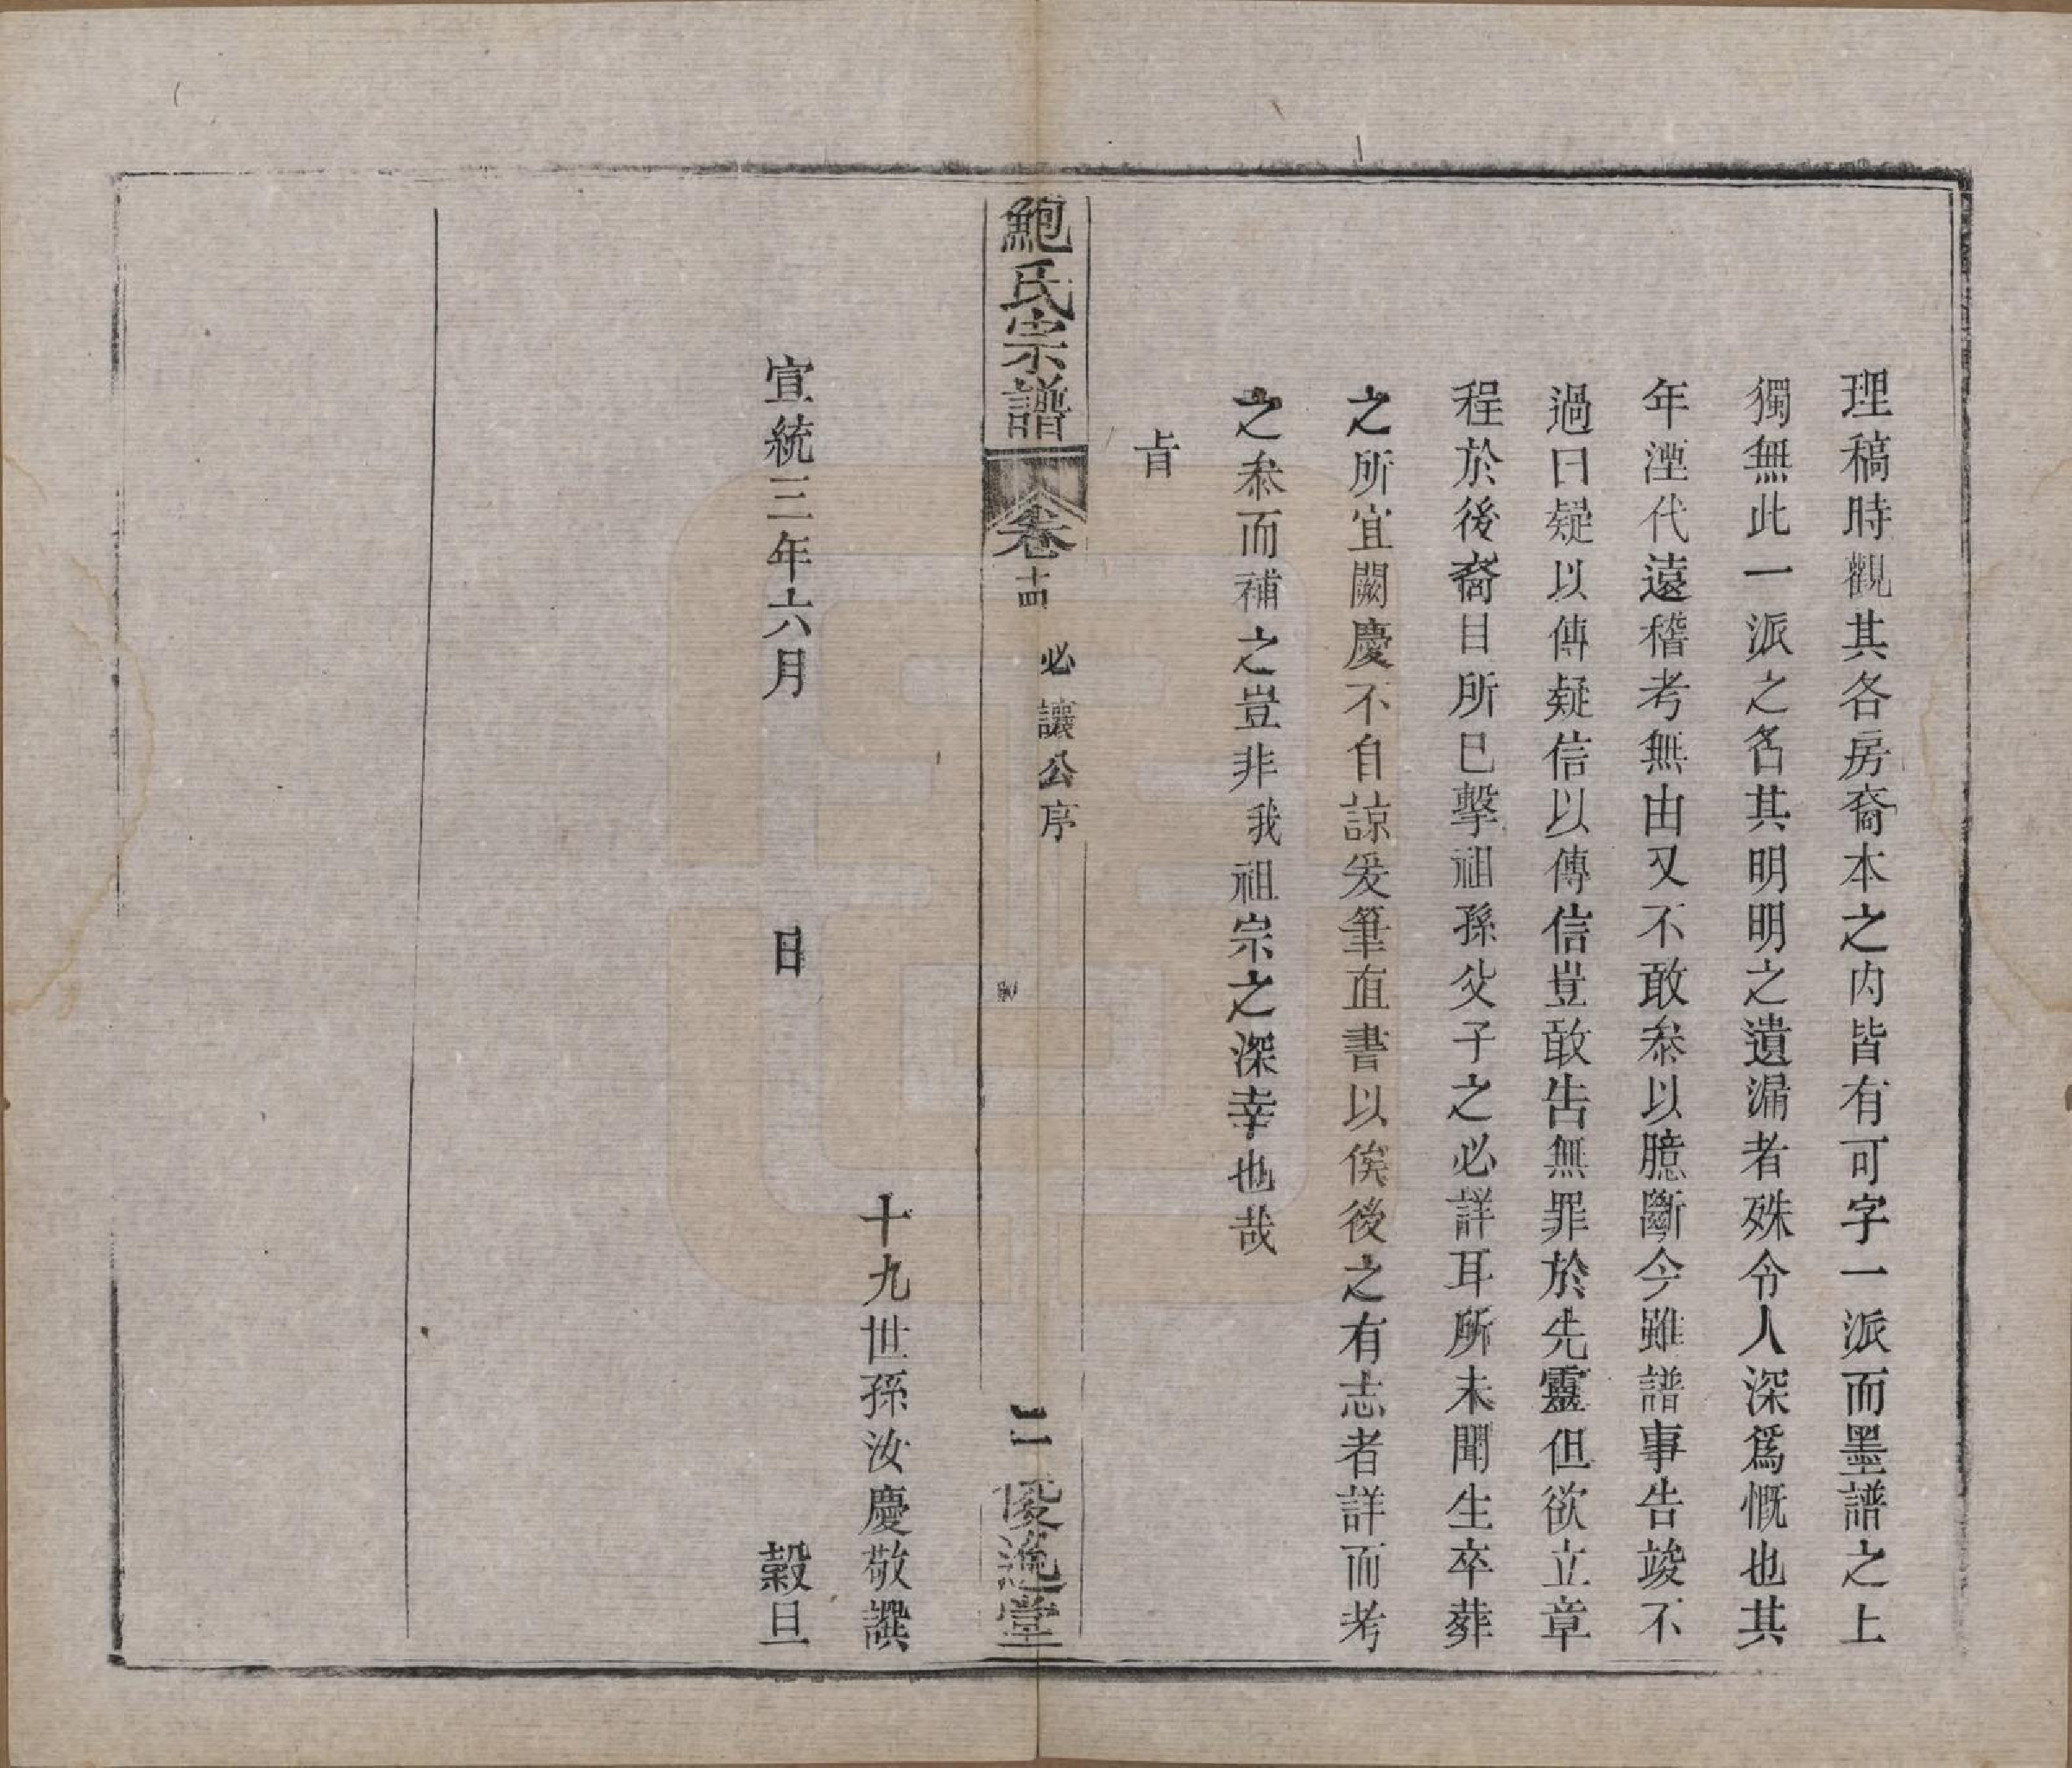 理稿時觀其各房裔本之内皆有可字一派而墨譜之上
獨無此一派之名其明明之遺漏者殊令人深爲慨也其
年湮代遠稽考無由又不敢叅以臆斷今雖譜事告竣不
過曰疑以傳疑信以傳信豈敢告無罪於先靈但欲立章
程於後裔目所已擊祖孫父子之必詳耳所未聞生卒葬
之所宜闕慶不自諒爰筆直書以俟後之有志者詳而考
之叅而補之豈非我祖宗之深幸也哉
旹
鮑氏宗譜
卷十四 必讓公序
二
十九世孫汝慶敬譔
宣統三年六月 日 穀旦